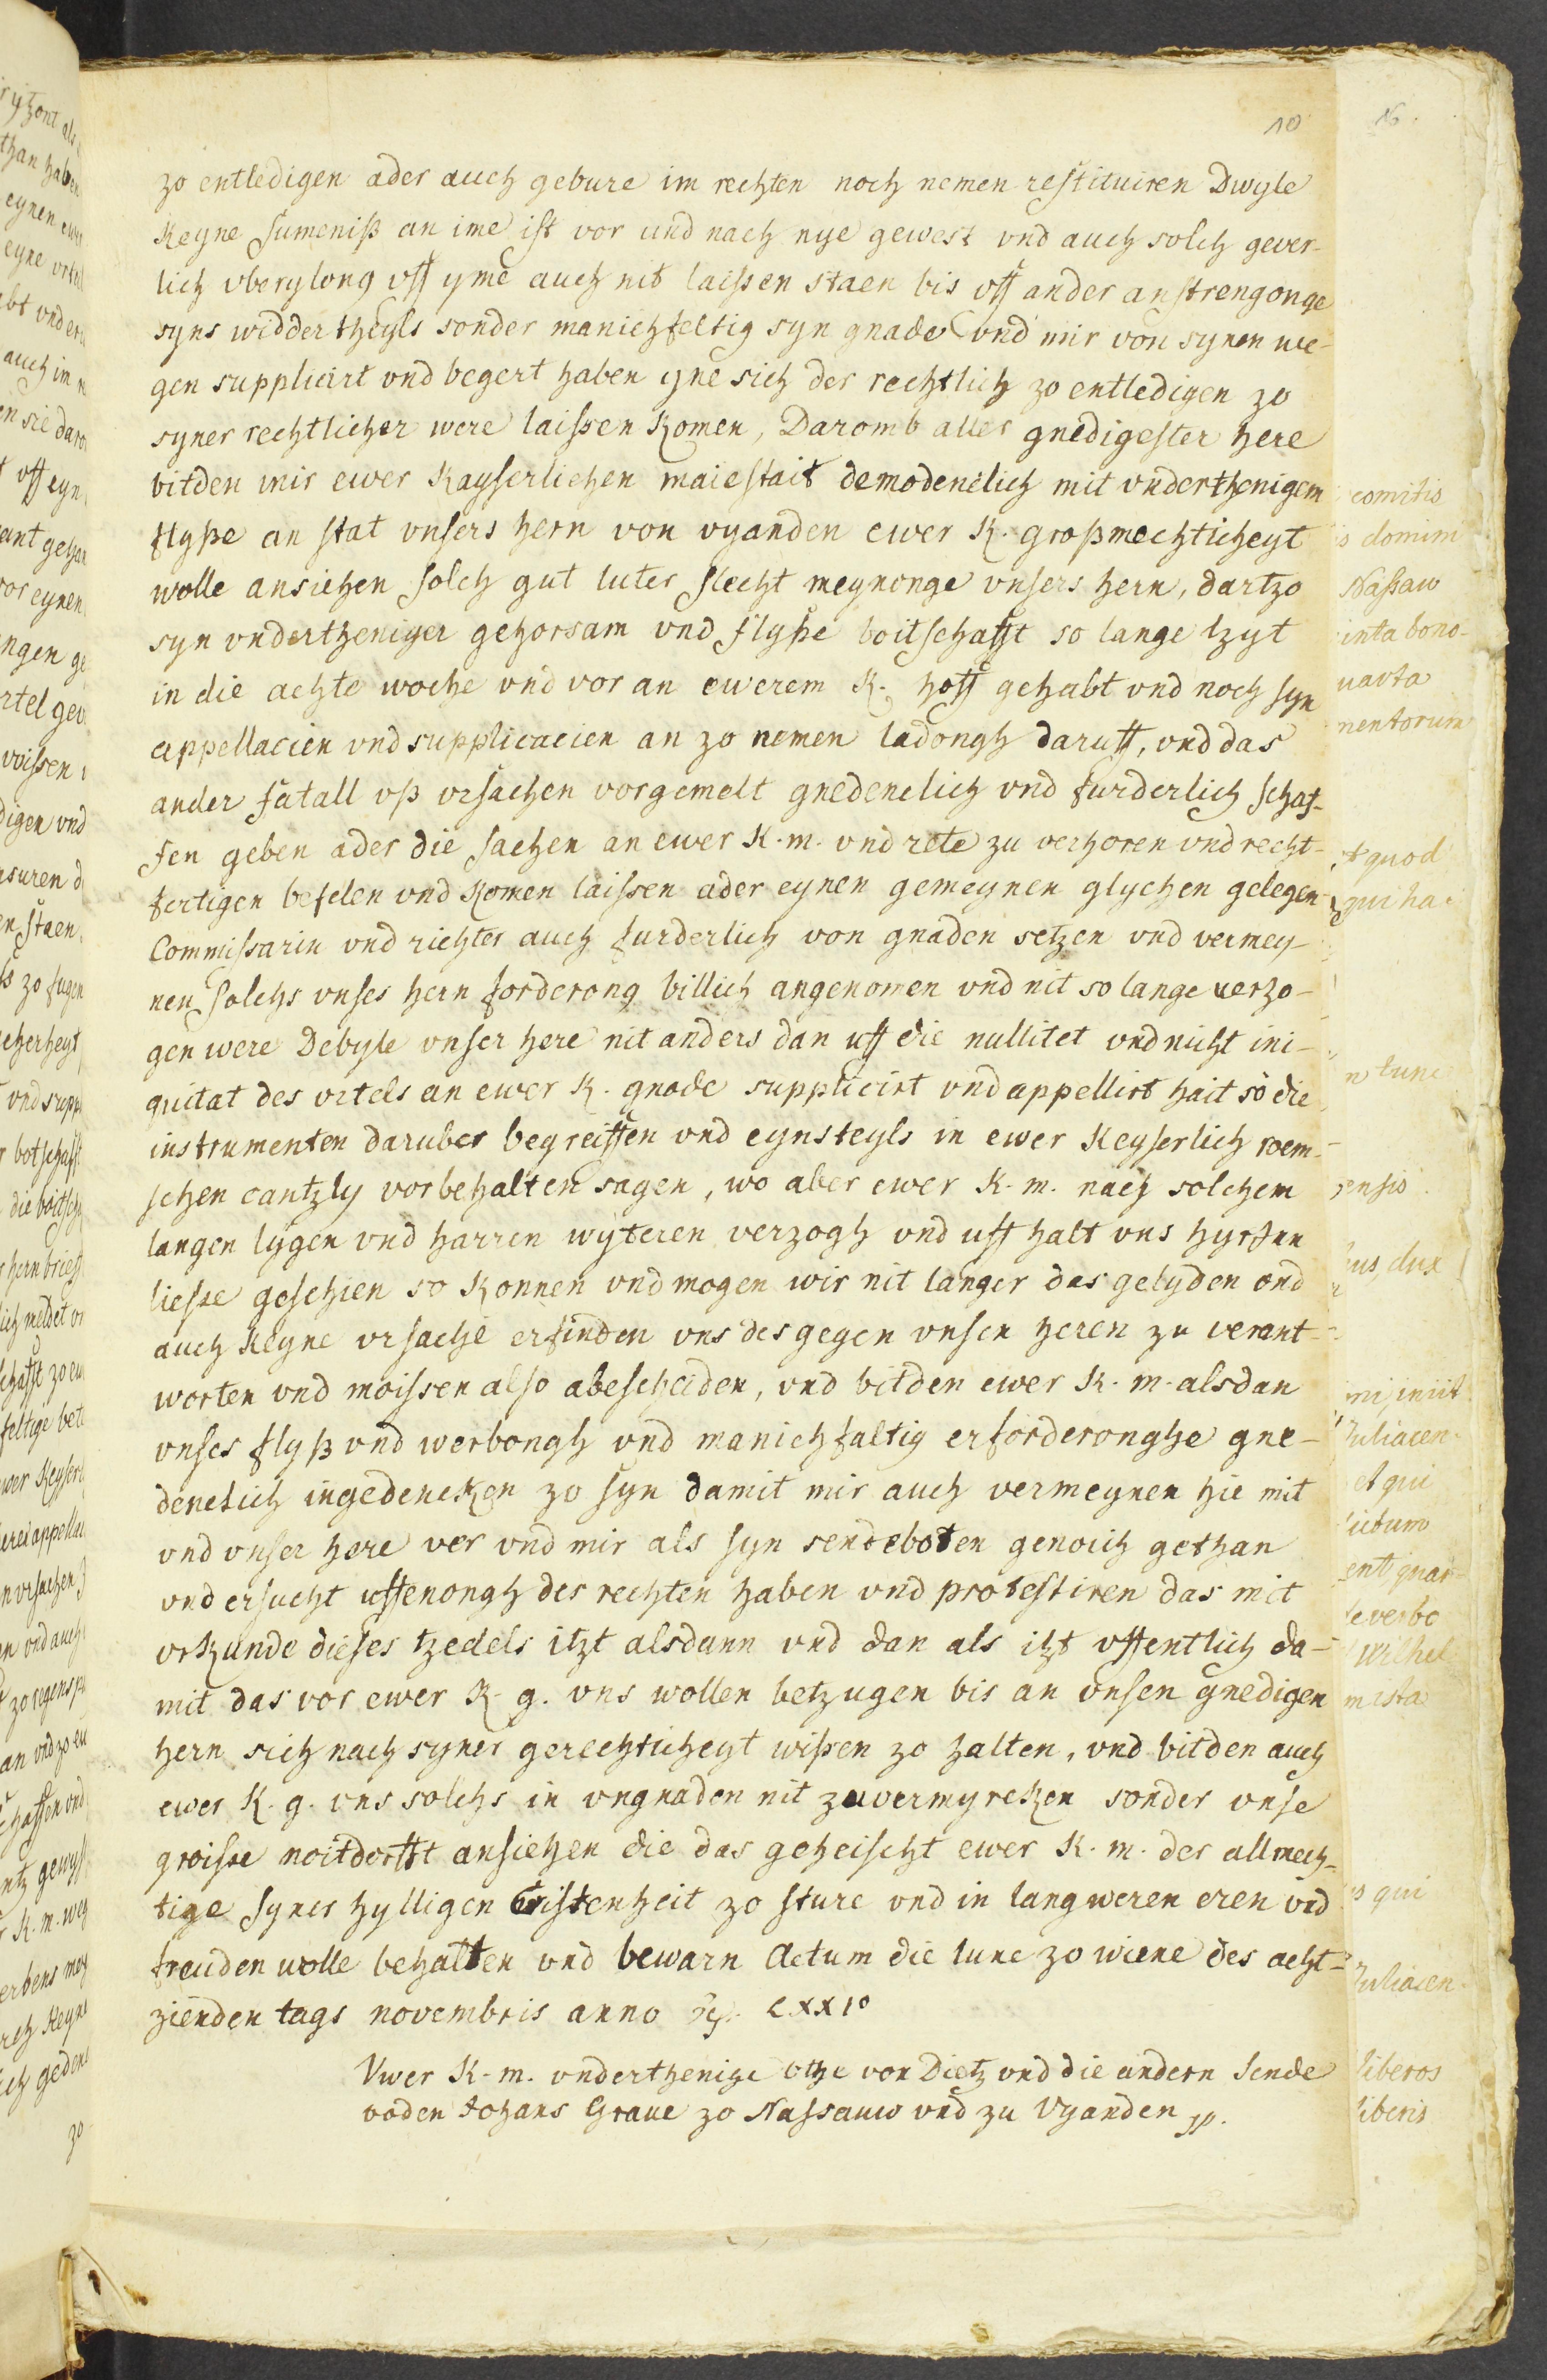 10
16.
zo entledigen ader auch gebure im rechten noch nemen restituiren Dwyle
Keyne sumeniß an ime ist vor und nach nye gewest vnd auch solch gever-
lich vberylong vff yme auch nit laissen staen bis vff ander anstrengonge
syns widdertheyls sonder manichfeltig syn gnade vnd mir von synen we-
gen supplicirt vnd begert haben yne sich der rechtlich zo entledigen zo
syner rechtlicher were laissen Komen, Daromb aller gnedigester here
bitden mir ewer Kayserlichen maiestait demodenclich mit vnderthenigem
flyße an stat vnsers hern von vyanden ewer K. großmechticheyt
wolle ansiehen solch gut luter slecht meynonge vnsers hern, dartzo
syn vndertheniger gehorsam vnd flyße boitschafft so lange tzyt
in die achte woche vnd vor an ewerem K. hoff gehabt vnd noch syn
appellacien vnd supplicacien an zo nemen ladongh daruff, vnd das
ander fatall vß vrsachen vorgemelt gnedenclich vnd furderlich schaf-
fen geben ader die sachen an ewer K. m. vnd rete zu verhoren vnd recht-
fertigen befelen vnd Komen laissen ader eynen gemeynen glychen gelegen
Commissarin vnd richter auch furderlich von gnaden setzen vnd vermey-
nen solchs vnses hern forderong billich angenomen vnd nit so lange verzo-
gen were Debyle vnser here nit anders dan uff die nullitet vnd nicht ini-
quitat des vrtels an ewer K. gnade supplicirt vnd appellirt hait so die
instrumenten daruber begreiffen vnd eynsteyls in ewer Keyserlich roem-
schen cantzly vorbehalten sagen, wo aber ewer K. m. nach solchem
langen lygen vnd harren wyteren verzogh vnd uff halt vns hyrinn
liesse geschien so Konnen vnd mogen wir nit langer das gelyden ond
auch Keyne vrsache erfinden vns des gegen vnsen heren zu verant-
worten vnd moissen also abescheiden, vnd bitden ewer K. m. alsdan
vnses flyß vnd werbongh vnd manichfaltig erforderonghe gne-
denclich ingedencken zo syn damit mir auch vermeynen hie mit
vnd vnser here ver vnd mir als syn sendeboten genoich gethan
vnd ersucht uffenongh der rechten haben vnd protestiren das mit
vrkunde dieses tzedels itzt alsdann vnd dan als itzt vffentlich da-
mit das vor ewer K. g. vns wollen betzugen bis an vnsen gnedigen
hern sich nach syner gerechticheyt wißen zo halten, vnd bitden auch
ewer K. g. vns solchs in vngnaden nit zu vermyrcken sonder vnse
groisse noitdorfft ansiehen die das geheischt ewer K. m. der allmech-
tige syner hylligen Cristenheit zo sture vnd in langweren eren vnd
freuden wolle behalten vnd bewarn Actum die lune zo wiene des acht-
zienden tags novembris anno LXXI°
Vwer K. m. vnderthenige Othe von Dietz vnd die andern sende
boden Johans Graue zo Nassauw vnd zu Vyanden
comitis
domini
Nassaw
inta bono-
uarta
mentorum
t quod
qui ha
tunc
ensis
us, dux
mi iniit
Juliacen-
et qui
ictum
ent quar-
de verbo
Wilhel
m ista
qui
Juliacen-
liberos
liberis
than haben
eyne vrtel
auch im
vff eyn
vor eynen
wissen
digen vnd
en staen
zo fugen
botschafft
hern brieff
lich meldet
wer Keyserl
vrsachen
vnd auch
K. m. weg
zo